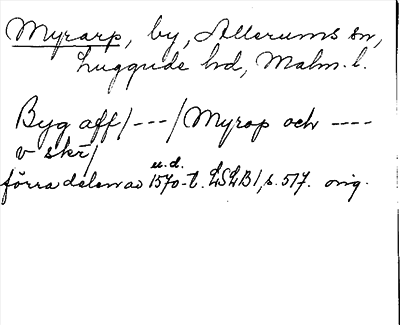 Myrarp, by, Allerums sn,
Luggude hd, Malm. l.
Byg aff /---/ Myrop och ----
v skr/
u. d.
förra delen av 1570-t. LSLB I, s. 517. orig.